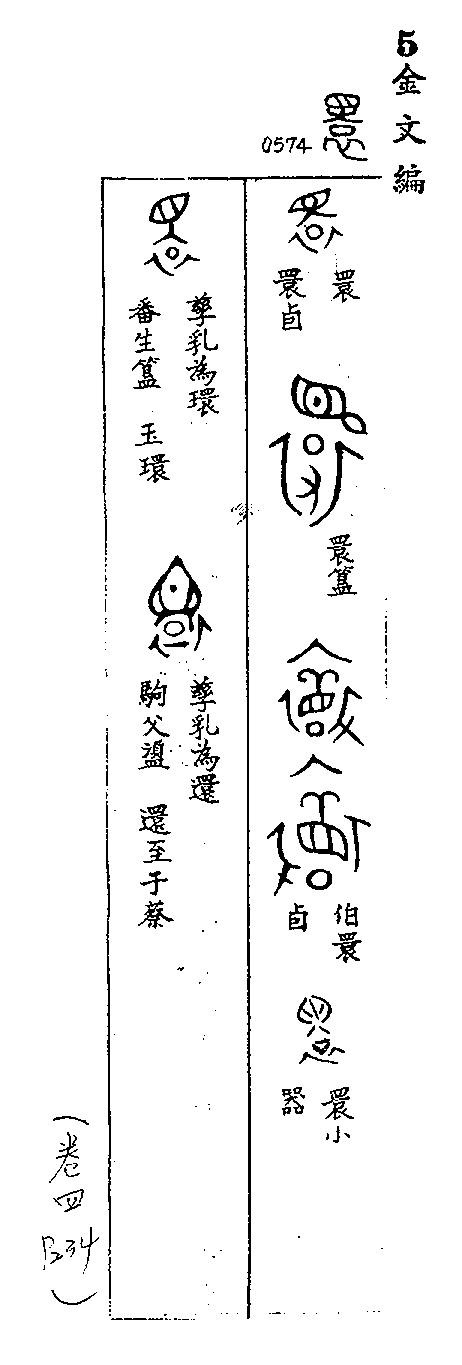 5金文編
睘
0574
睘
睘卣
睘簋
伯睘
卣
睘小
器
孳乳為環
番生簋 玉環
孳乳為還
駒父盨 還至于蔡
(卷四
P.34)